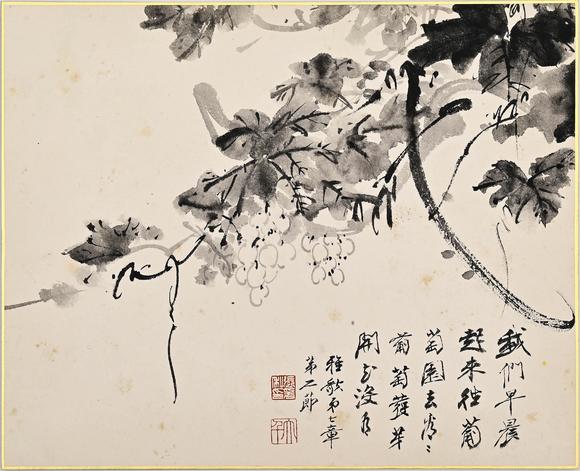 我們早晨
起來往葡
萄園去看〻
葡萄發芽
開花沒有
雅歌第七章
第十二節
大千